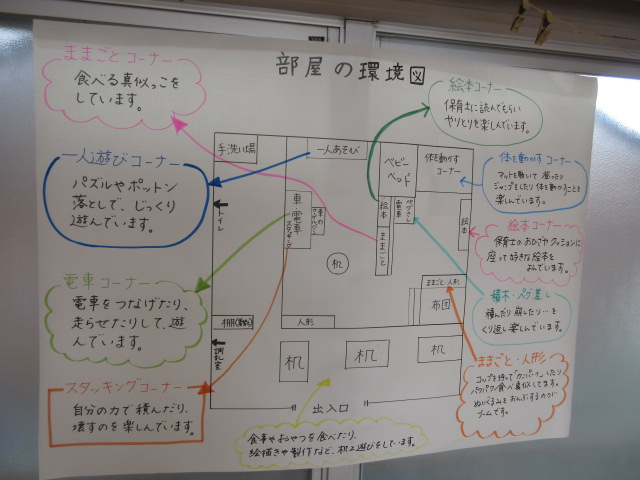 部屋の環境図
ままごとコーナー
食べる真似っこを
しています。
一人遊びコーナー
パズルやポットン
落としで、じっくり
遊んでいます。
電車コーナー
電車をつなげたり、
走らせたりして、遊
んでいます。
スタッキングコーナー
自分の力で積んだり、
壊すのを楽しんでいます。
手洗い場
一人あそび
ベビー
ベッド
体を動かす
コーナー
トイレ
車・電車
スタッキング
絵本
ままごと
電車
ペグさし
絵本
机
ままごと・人形
布団
棚
人形
調乳室
机
机
机
出入口
食事やおやつを食べたり、
絵描きや製作など、机上遊びをしています。
絵本コーナー
保育士に読んでもらい
やりとりを楽しんでいます。
体を動かすコーナー
マットを敷いて登ったり
ジャンプをしたり体を動かすことを
楽しんでいます。
絵本コーナー
保育士のおひざやクッションに
座って好きな絵本を
よんでいます。
積木・ペグ差し
積んだり崩したり…を
くり返し楽しんでいます。
ままごと・人形
コップを持ってカンパーイしたり
パクパク食べ真似してます。
ぬいぐるみをおんぶするのが
ブームです。